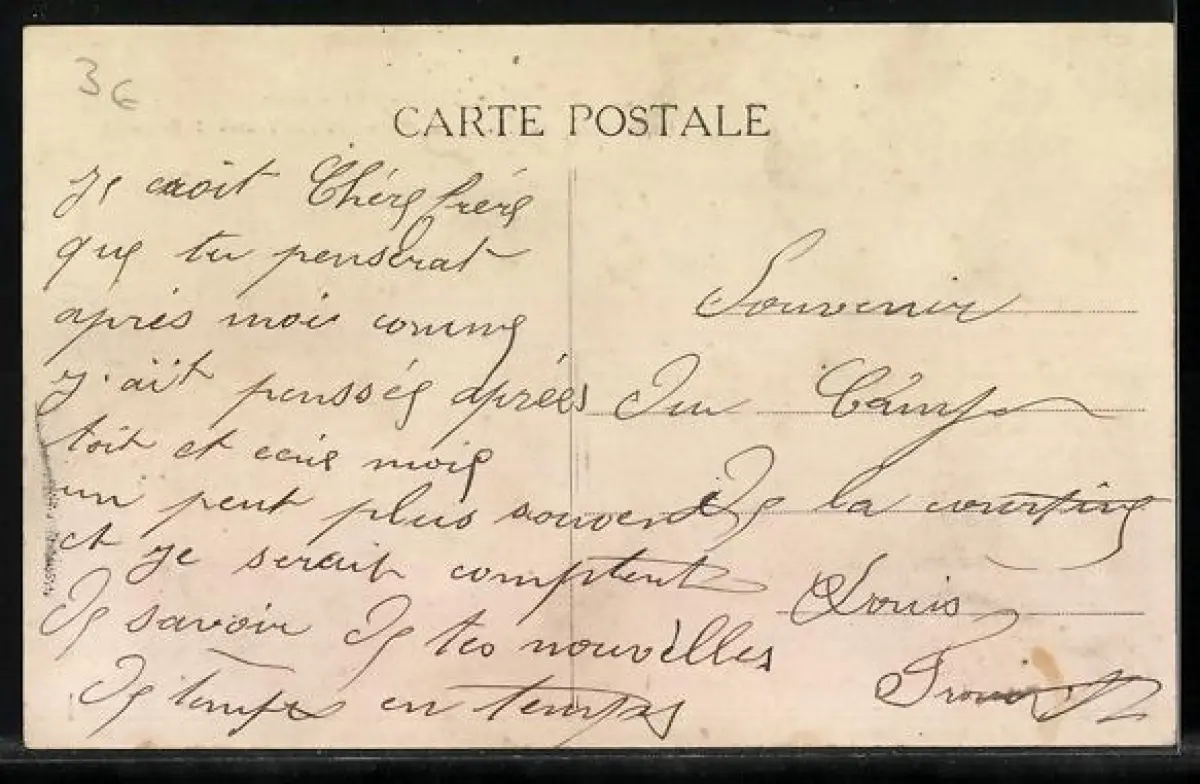 3€
CARTE POSTALE
Je croit Chére frére
que tu penserat
aprés moi comme
J'ait penssée aprées
toit et ecrie moie
un peut plus souvent
et je serait comptent
de savoir de tes nouvelles
de temps en temps
Souvenir
Du Camp
de la courtine
Louis